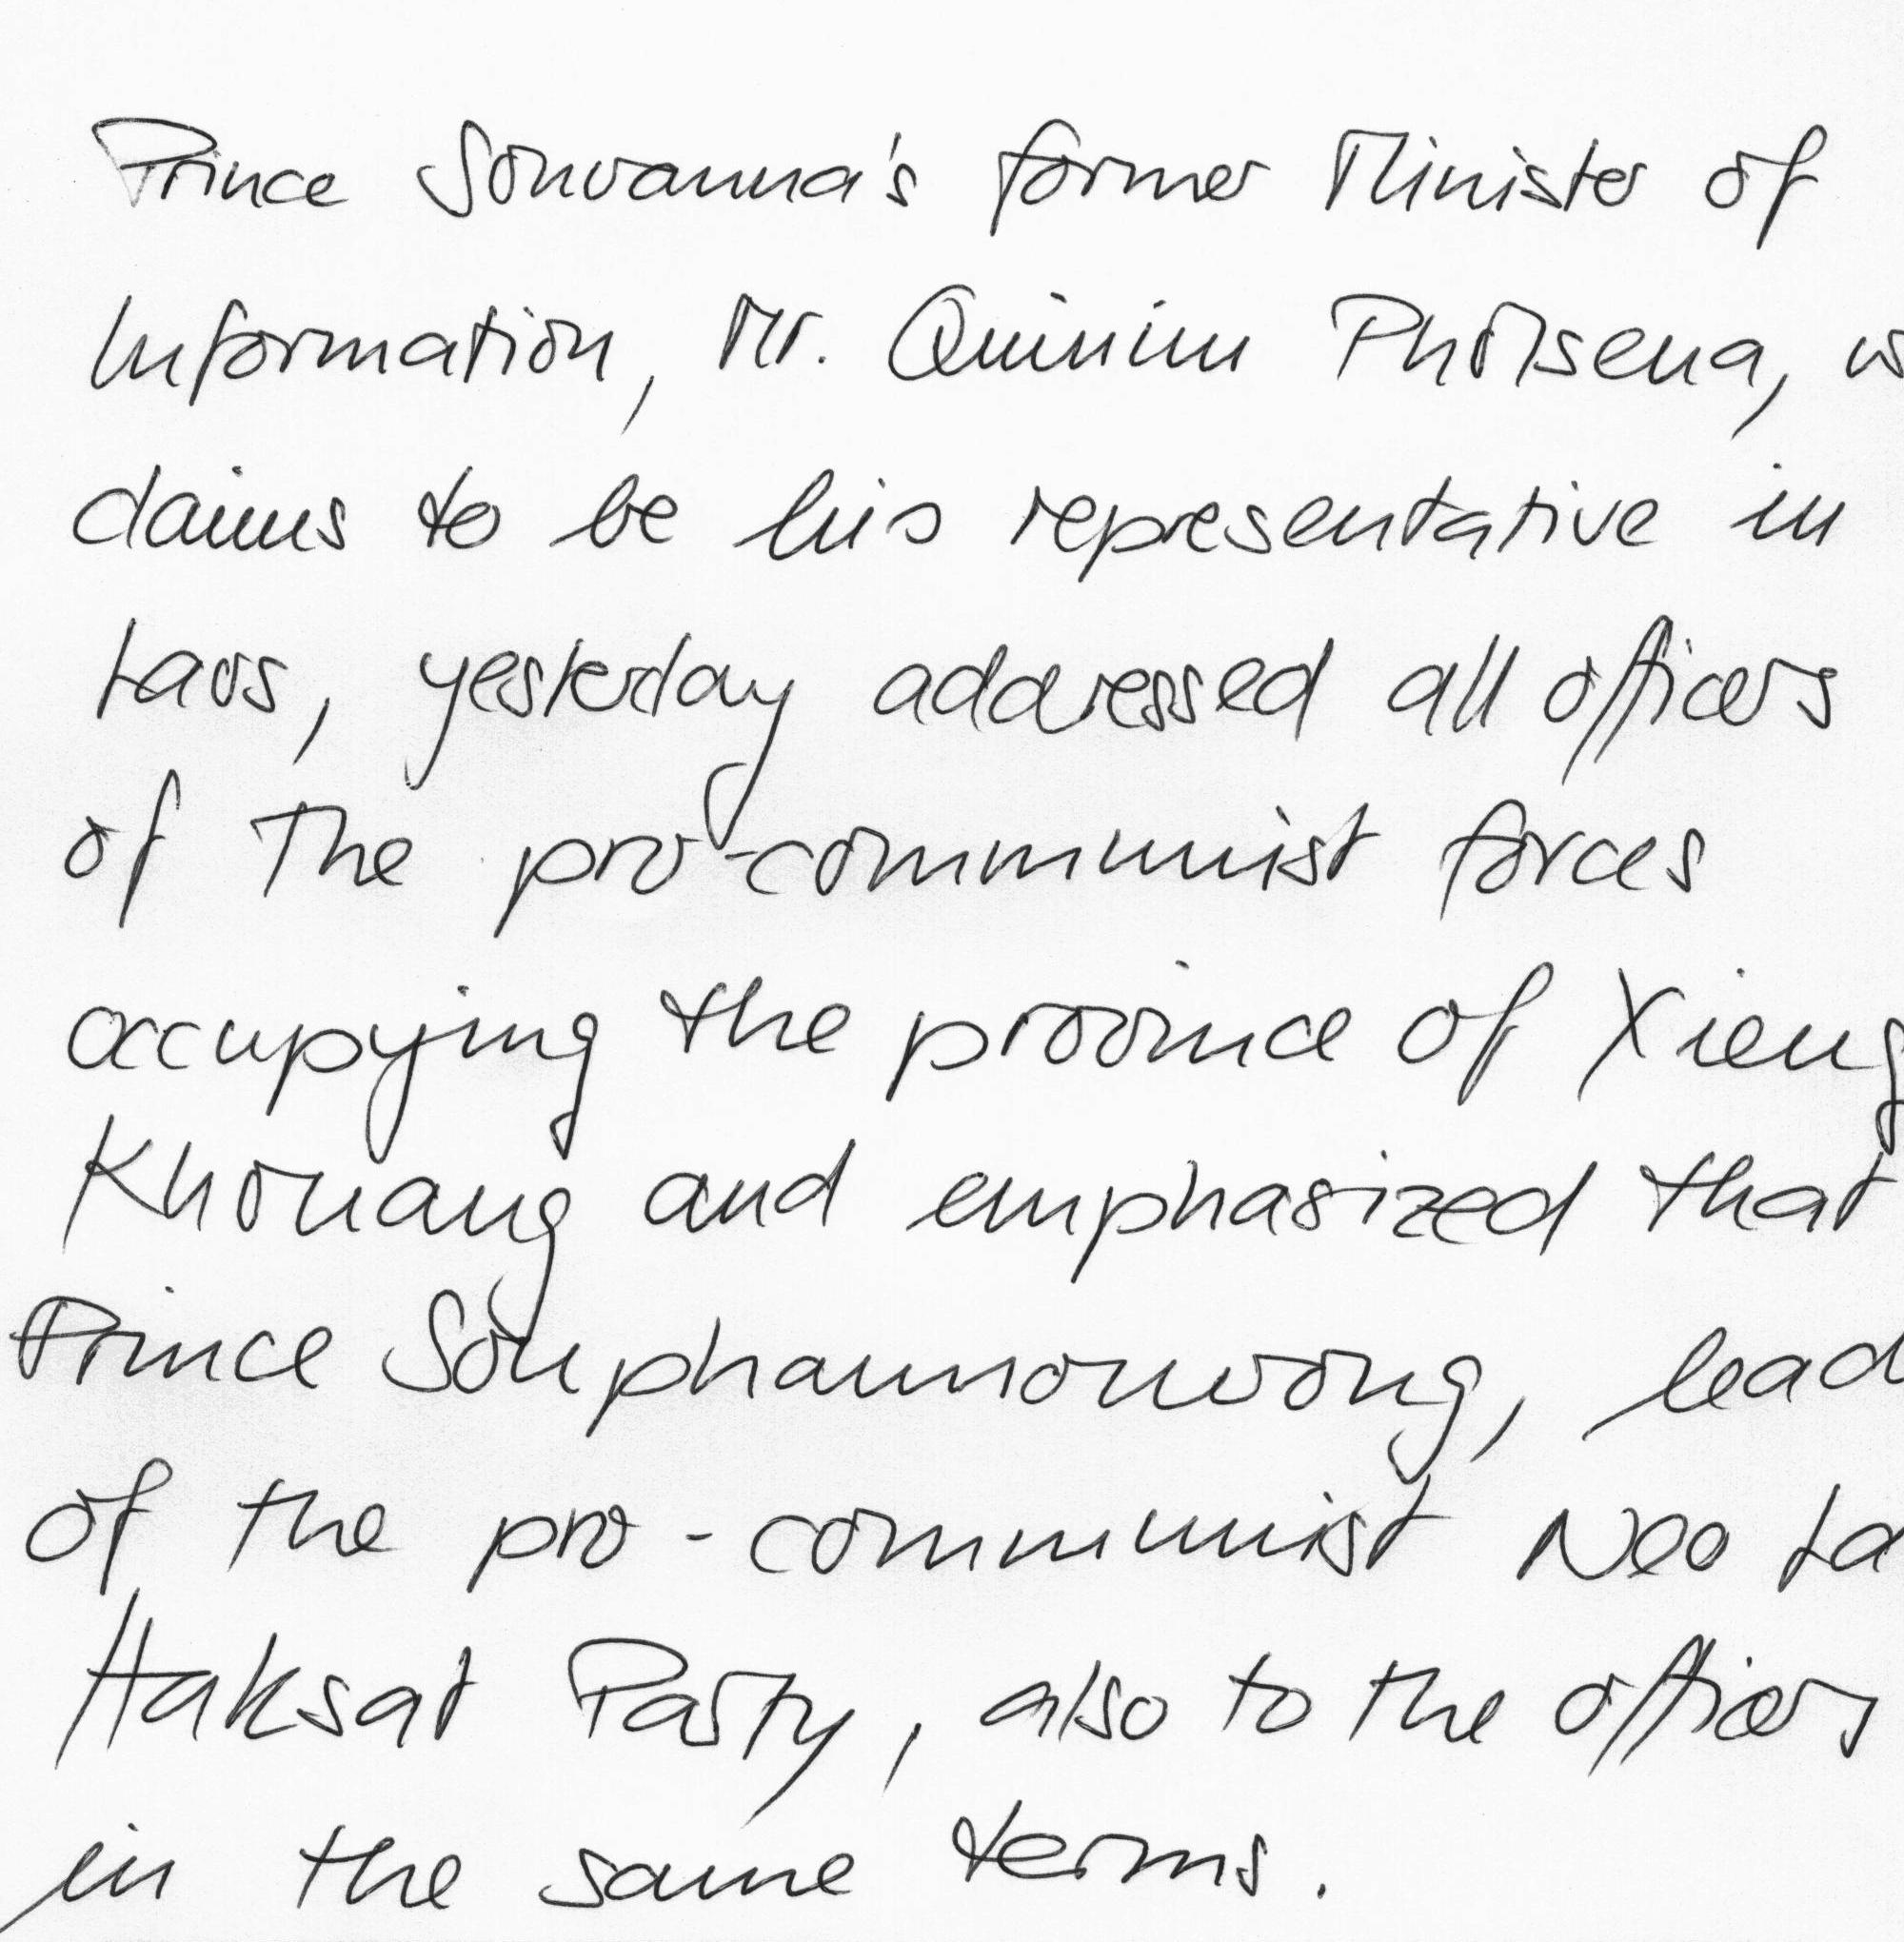 Prince Souvanna's former Minister of
Information, Mr. Quinim Pholsena,
claims to be his representative in
Laos, yesterday addressed all officers
of the pro-communist forces
occupying the province of Xieng
Khouang and emphasized that
Prince Souphannouvong, lead
of the pro-communist Neo La
Haksat Party, also to the officers
in the same terms.